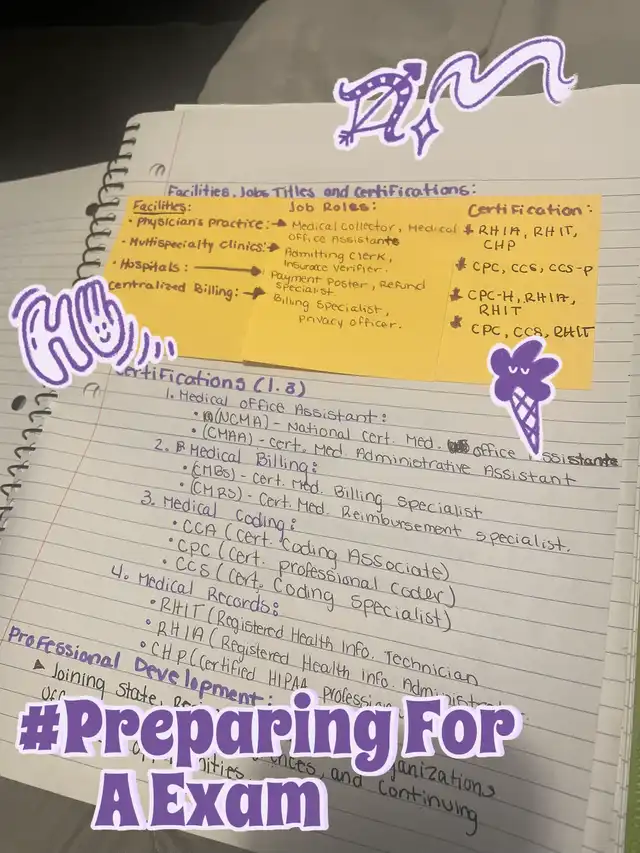 Facilities, Jobs Titles and Certifications:
Facilities: Job Roles: Certification:
• Physician's practice: → Medical collector, Medical office Assistants
RHIA, RHIT, CHP
• Multispecialty clinics: → Admitting clerk, Insurace verifier.
CPC, CCS, CCS-P
• Hospitals: → Payment poster, Refund specialist
CPC-H, RHIA, RHIT
Centralized Billing: → Billing specialist, privacy officer.
CPC, CCS, RHIT
HA
Certifications (1.3)
1. Medical office Assistant:
• (NCMA) - National Cert. Med. office Assistants
• (CMAA) - Cert. Med. Administrative Assistant
2. Medical Billing:
• (CMBS) - Cert. Med. Billing Specialist
• (CMRS) - Cert. Med. Reimbursement specialist.
3. Medical Coding:
• CCA (Cert. Coding Associate)
• CPC (Cert. professional Coder)
• CCS (Cert. Coding Specialist)
4. Medical Records:
• RHIT (Registered Health Info. Technician
• RHIA (Registered Health Info.
• CHP (Certified HIPAA
Professional Development:
▸ Joining state,
and continuing
#Preparing For
A Exam